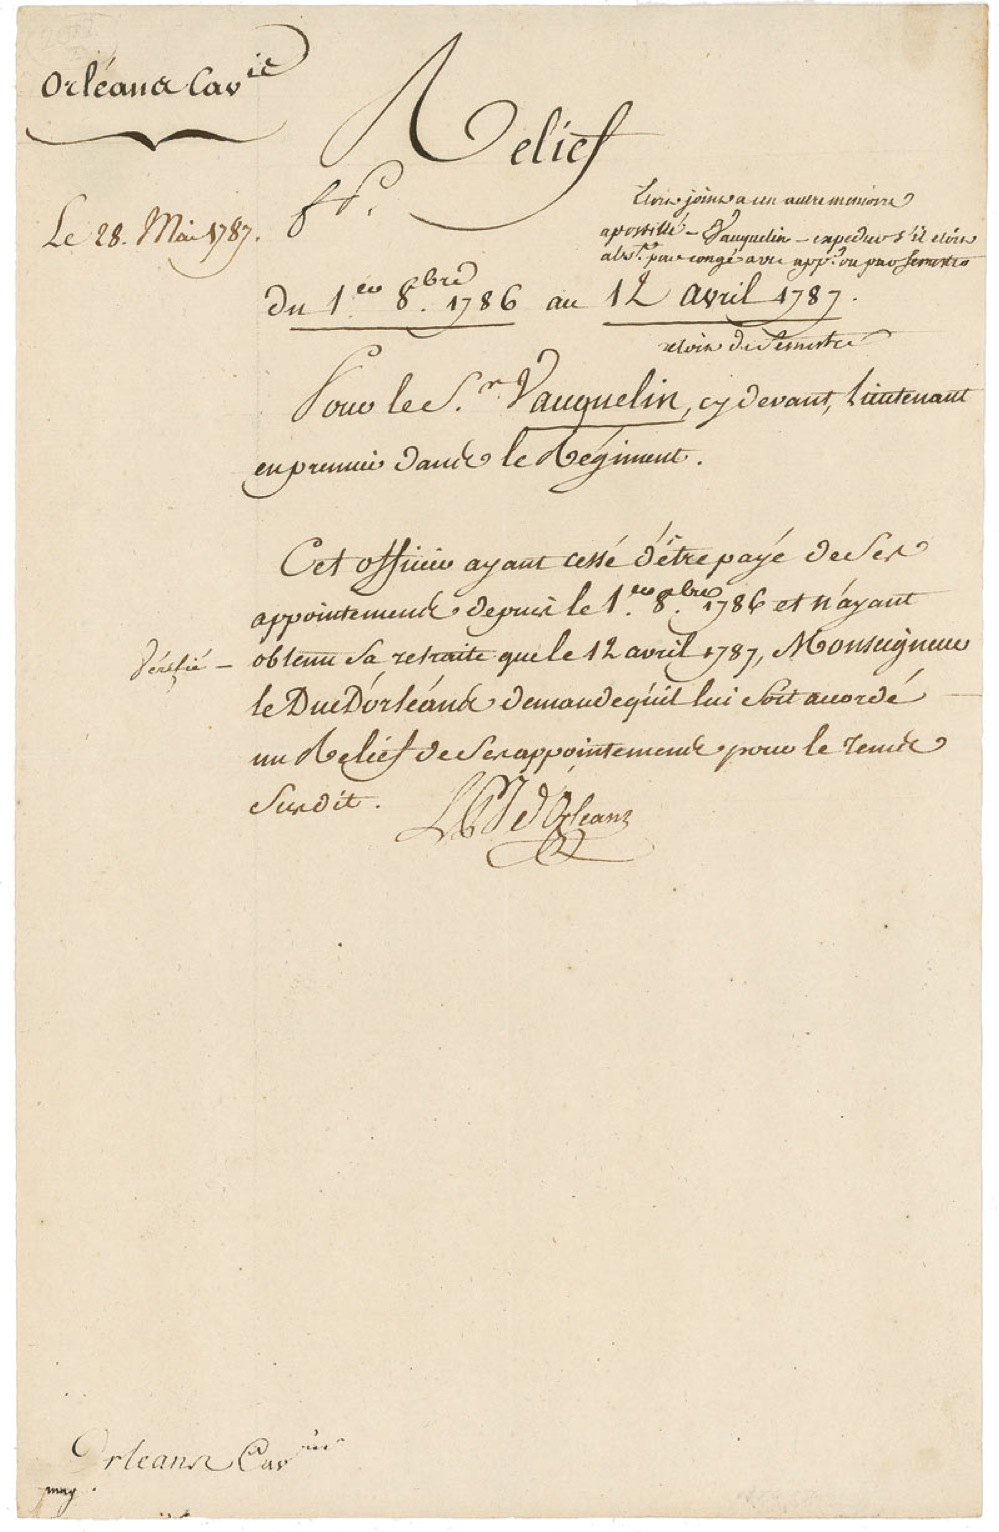 Orléans Cav.ie
Relief
Le 28. Mai 1787.
etois joins a un autre memoire
apostillé - Vauquelin - expedier s'il etois
abs.t par congé avec app.ts ou par semestre
du 1.er 8.bre 1786 au 12 avril 1787.
etois de Semestre
Pour le S.r Vauquelin, cy devant, Lieutenant
en premier dans le Régiment.
Cet officier ayant cessé d'être payé de Ses
appointements depuis le 1.er 8.bre 1786 et n'ayant
Vérifié - obtenu Sa retraite que le 12 avril 1787, Monseigneur
le Duc D'orléans demande qu'il lui Soit accordé
un Relief de Ses appointements pour le tems
Susdit.
L P J d'Orleans
Orleans Cav
may.